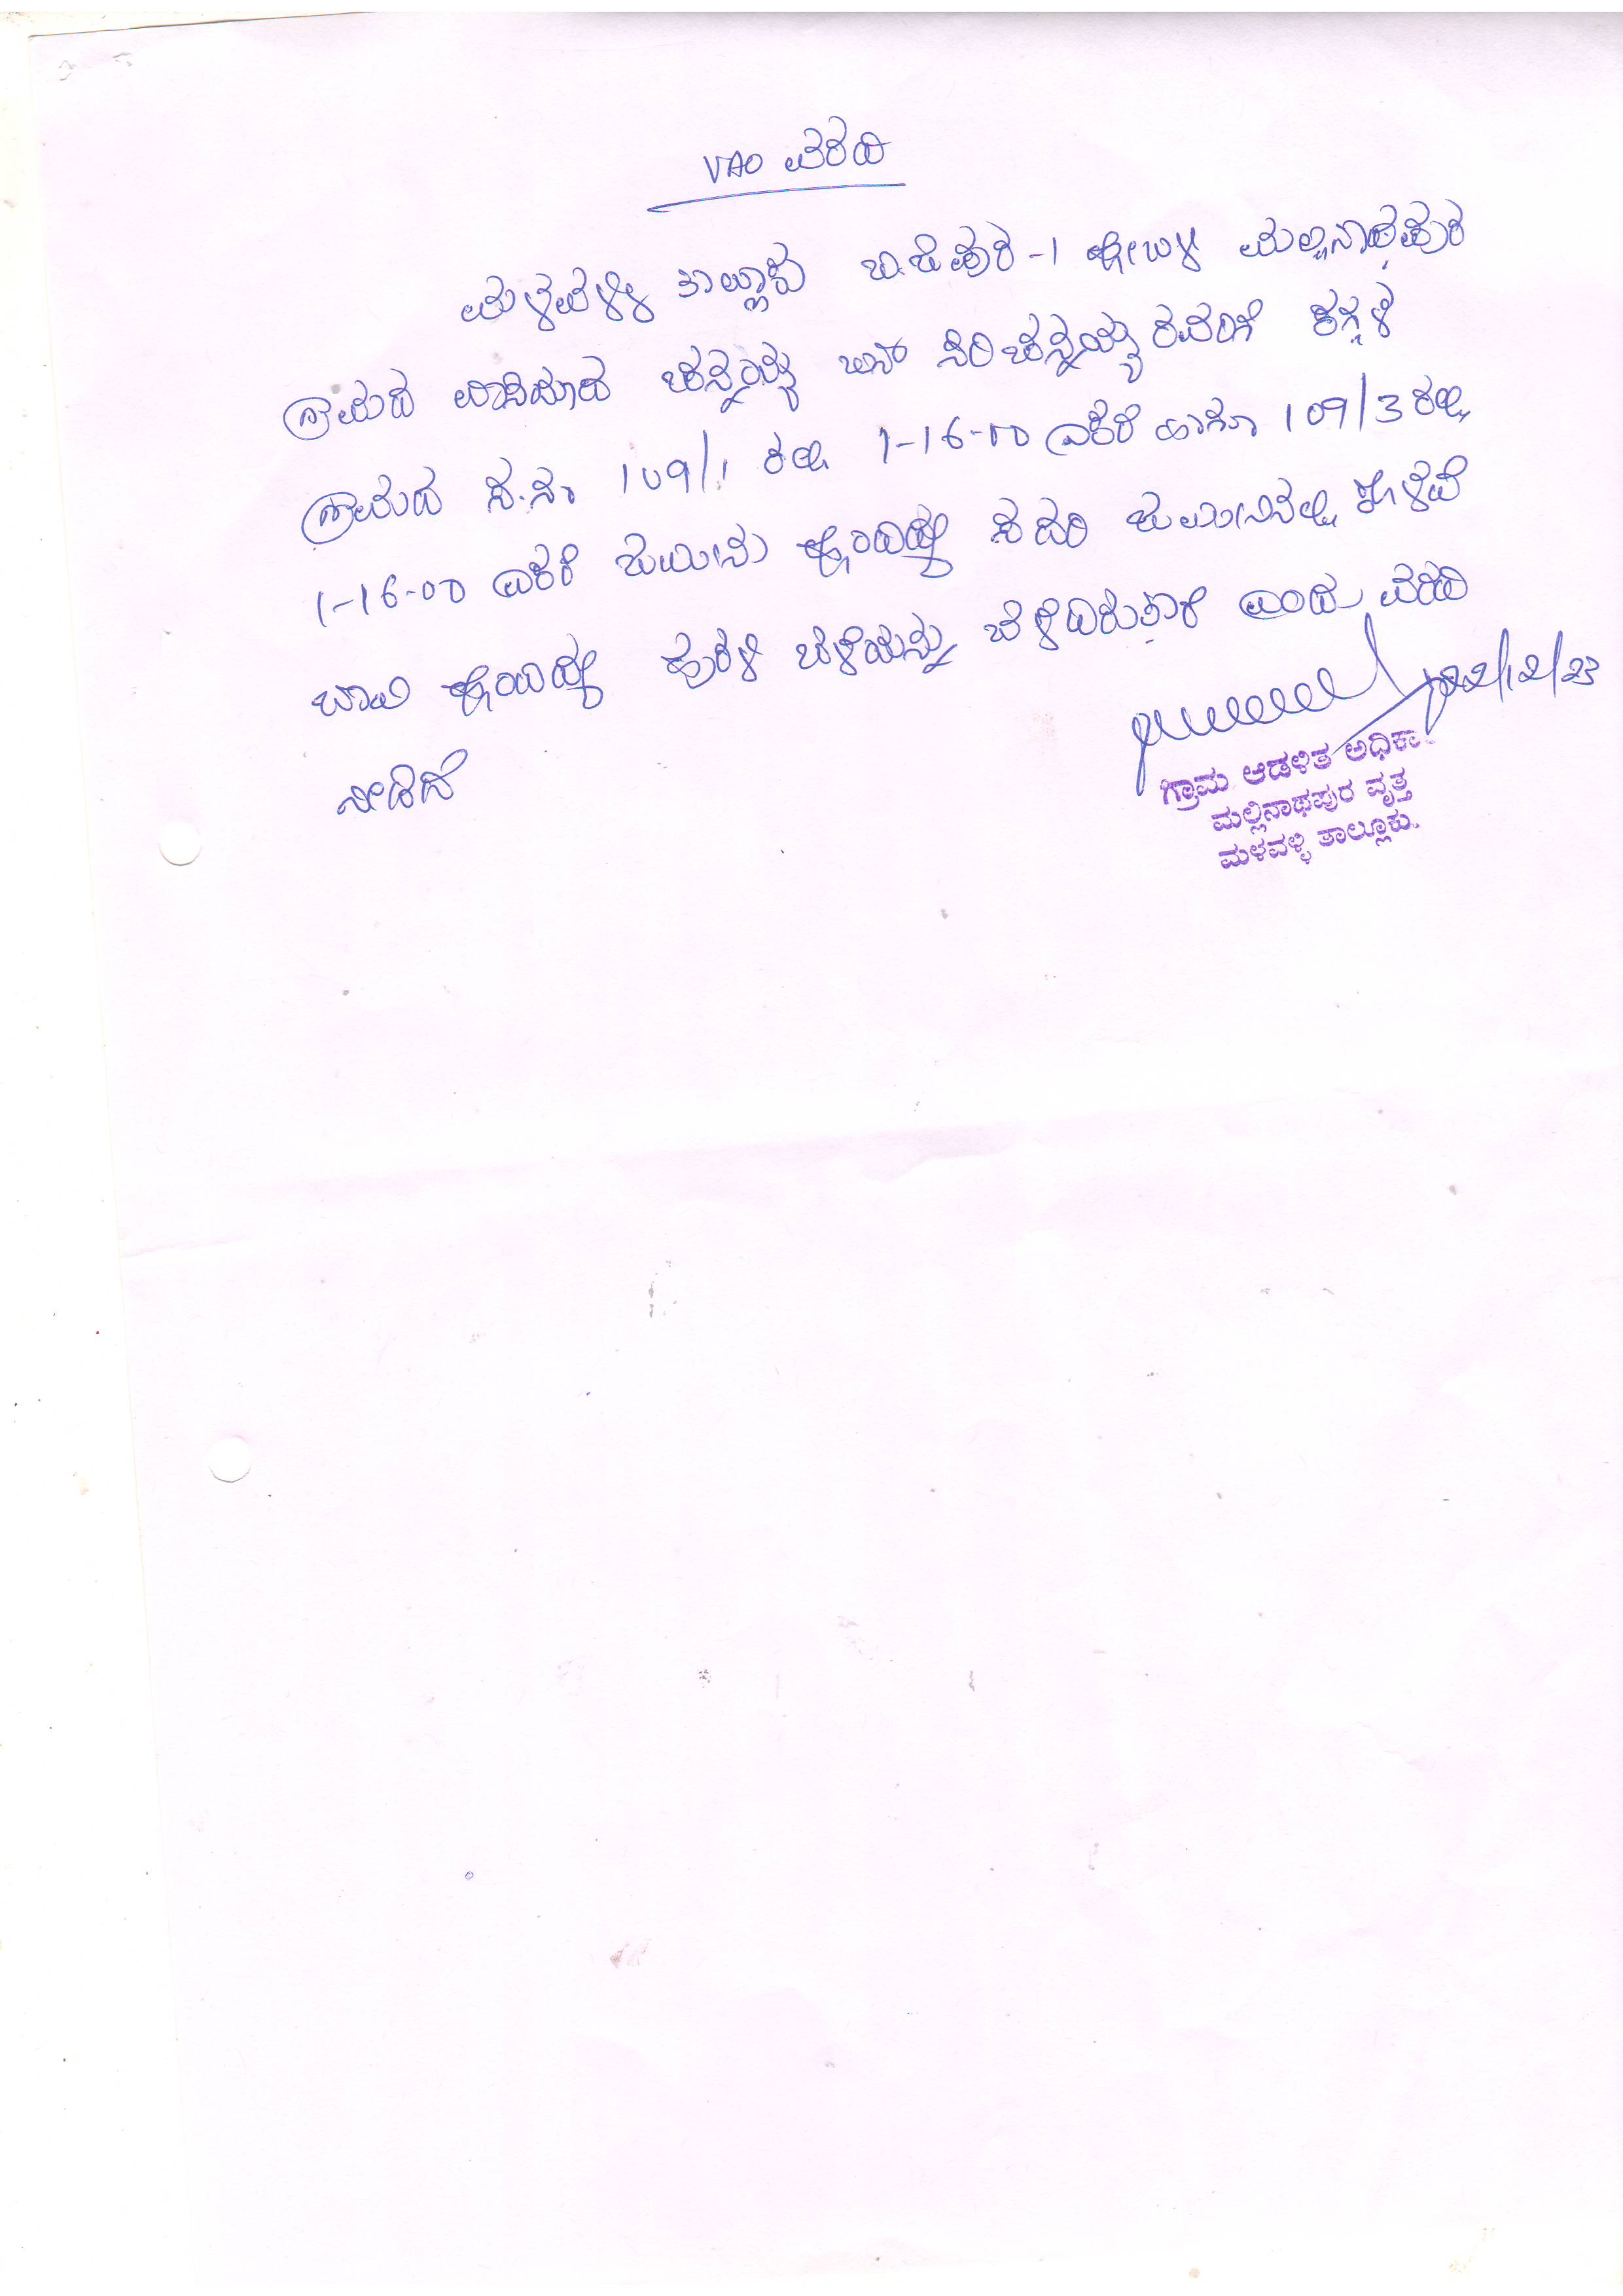 VAO ವರದಿ
ಮಳವಳ್ಳಿ ತಾಲ್ಲೂಕು ಬಿ.ಜಿ.ಪುರ-1 ಹೋಬಳಿ ಮಲ್ಲಿನಾಥಪುರ
ಗ್ರಾಮದ ವಾಸಿಯಾದ ಚನ್ನಯ್ಯ ಬಿನ್ ಸಿರಿಚನ್ನಯ್ಯ ರವರಿಗೆ ಕಗ್ಗಳಿ
ಗ್ರಾಮದ ಸ.ನಂ 109/1 ರಲ್ಲಿ 1-16-00 ಎಕರೆ ಹಾಗೂ 109/3 ರಲ್ಲಿ
1-16-00 ಎಕರೆ ಜಮೀನು ಹೊಂದಿದ್ದು ಸದರಿ ಜಮೀನಿನಲ್ಲಿ ಕೊಳವೆ
ಬಾವಿ ಹೊಂದಿದ್ದು ಹುರಳಿ ಬೆಳೆಯನ್ನು ಬೆಳೆದಿರುತ್ತಾರೆ ಎಂದು ವರದಿ
ನೀಡಿದೆ
22/12/23
ಗ್ರಾಮ ಆಡಳಿತ ಅಧಿಕಾ
ಮಲ್ಲಿನಾಥಪುರ ವೃತ್ತ
ಮಳವಳ್ಳಿ ತಾಲ್ಲೂಕು.